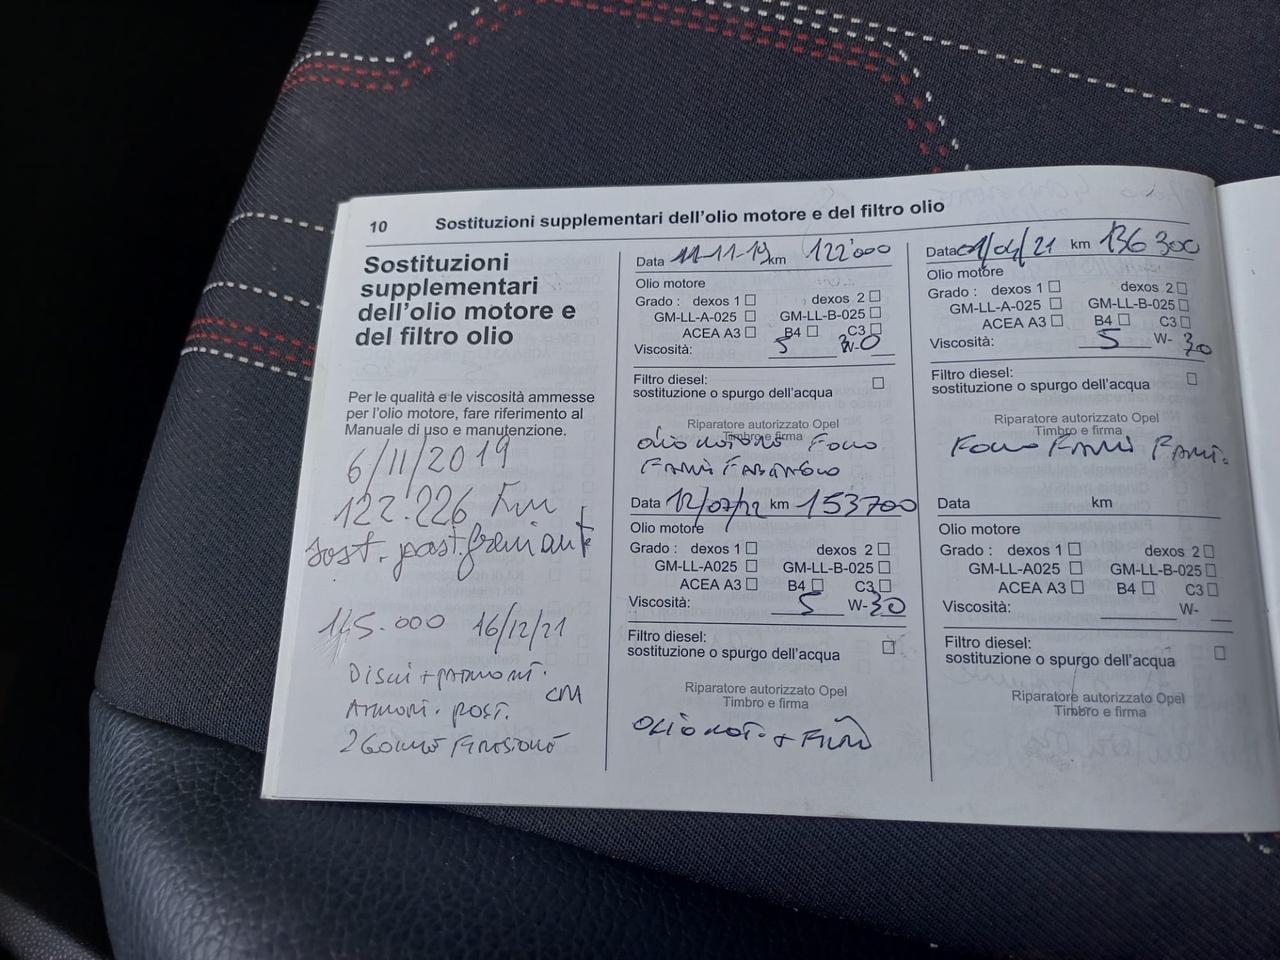 10 Sostituzioni supplementari dell'olio motore e del filtro olio
Sostituzioni
supplementari
dell'olio motore e
del filtro olio
Per le qualità e le viscosità ammesse
per l'olio motore, fare riferimento al
Manuale di uso e manutenzione.
6/11/2019
122.226 Km
sost. past. frenianti
145.000 16/12/21
Dischi +
CM
Ammort. post.
2 Gomme
Data 11-11-19 km 122'000
Olio motore
Grado : dexos 1 □ dexos 2 □
GM-LL-A-025 □ GM-LL-B-025 □
ACEA A3 □ B4 □ C3 □
Viscosità: 5 W-30
Filtro diesel:
sostituzione o spurgo dell'acqua □
Riparatore autorizzato Opel
Timbro e firma
olio motore
Data 12/07/22 km 153700
Olio motore
Grado : dexos 1 □ dexos 2 □
GM-LL-A025 □ GM-LL-B-025 □
ACEA A3 □ B4 □ C3 □
Viscosità: 5 W-30
Filtro diesel:
sostituzione o spurgo dell'acqua □
Riparatore autorizzato Opel
Timbro e firma
OLIO MOT. + FILTRI
Data 01/04/21 km 136300
Olio motore
Grado : dexos 1 □ dexos 2 □
GM-LL-A-025 □ GM-LL-B-025 □
ACEA A3 □ B4 □ C3 □
Viscosità: 5 W-30
Filtro diesel:
sostituzione o spurgo dell'acqua □
Riparatore autorizzato Opel
Timbro e firma
Data km
Olio motore
Grado : dexos 1 □ dexos 2 □
GM-LL-A025 □ GM-LL-B-025 □
ACEA A3 □ B4 □ C3 □
Viscosità: W-
Filtro diesel:
sostituzione o spurgo dell'acqua □
Riparatore autorizzato Opel
Timbro e firma